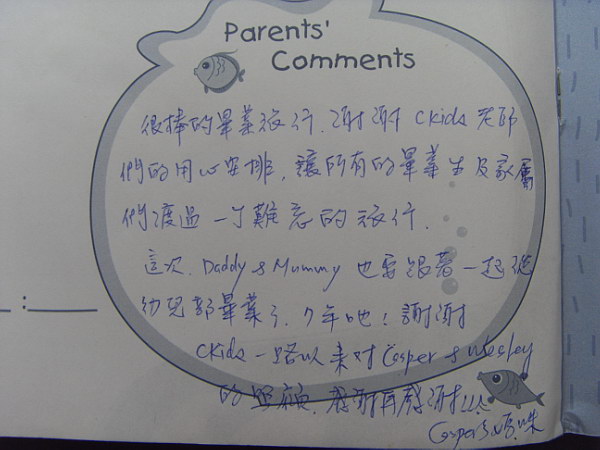 Parents'
Comments
很棒的畢業旅行.謝謝 Ckids 老師
們的用心安排,讓所有的畢業生及家屬
們渡過一個難忘的旅行.
這次. Daddy & Mummy 也要跟著一起從
幼兒部畢業了.7年吔!謝謝
Ckids 一路以來对 Casper & Wesley
的照顧.感謝再感謝!!!
Casper 媽咪
: